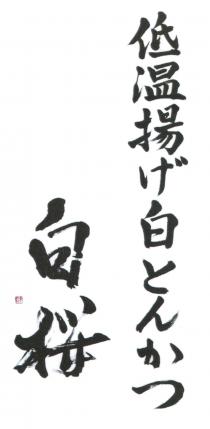 低温揚げ白とんかつ
白桜